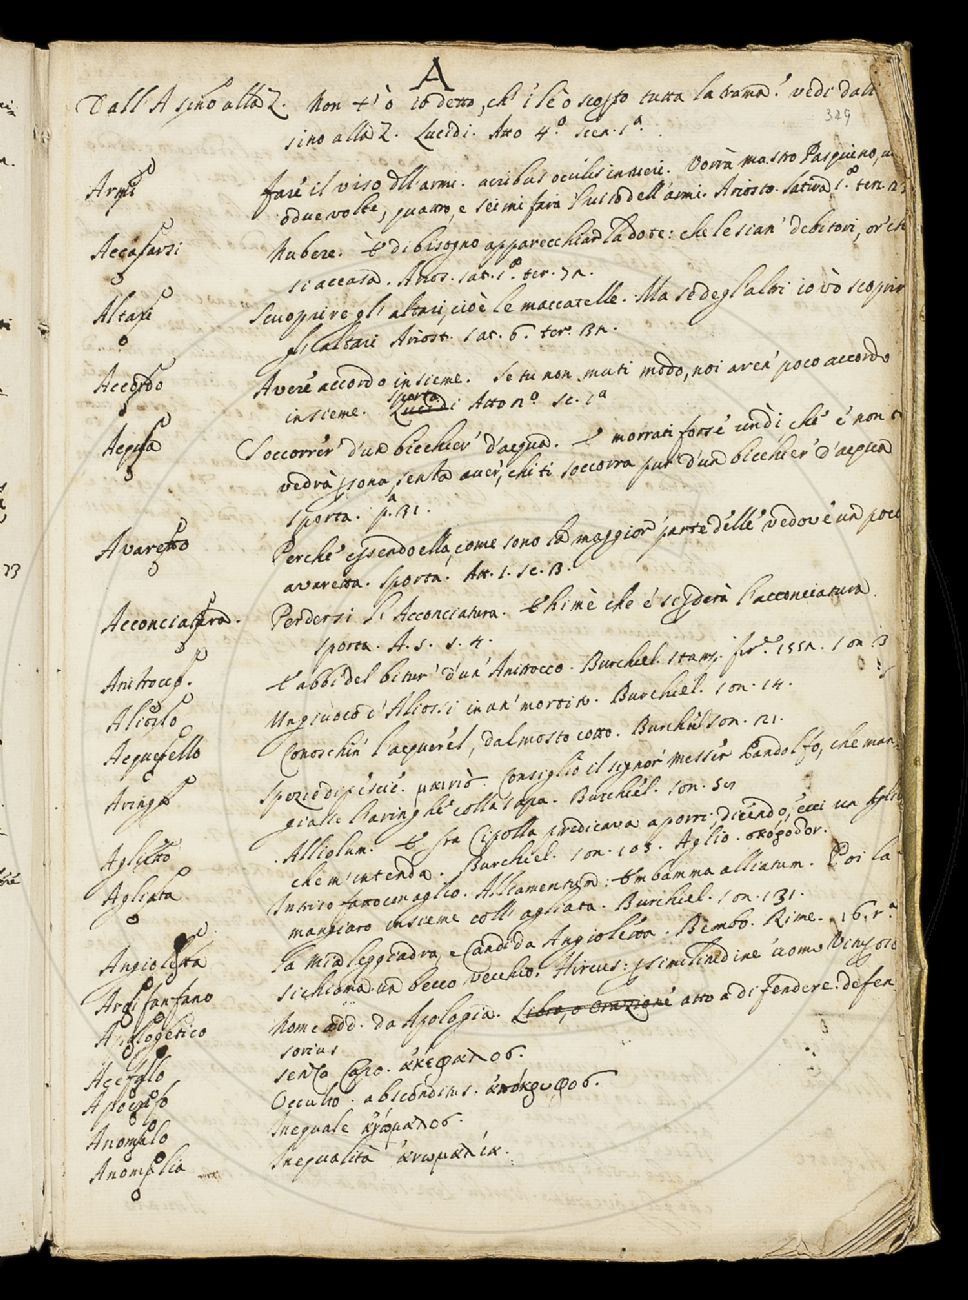 A
329
Dall'A sino alla Z. Non t'ò io detto, ch'i le ò scosso tutta la vedi dall'A
sino alla Z. Lucidi. Atto 4.º scen. 1.ª
Armi fare il viso dell'armi. acribus oculis intueri. Vorrà mastro Pasquino, una
o due volte, quattro, e sei mi farà 'l viso dell'armi. Ariosto. Satira 1.ª ter.
Accasarsi Nubere. E' di bisogno apparecchiar la dote: che le sian' debitori, or' ch
si accasa. Arios. sat. 1.ª ter.
Altari Scuoprire gl'altari, cioè le maccatelle. Ma se degl'altri io vò scoprir
gl'altari Ariost. sat. 6. ter. 13.
Accordo Avere accordo insieme. Se tu non muti modo, noi aren' poco accordo
insieme. sporta Lucidi Atto sc. 1.ª
Acqua Soccorrer' d'un bicchier' d'acqua. E' morrati forse un dì che' e' non
vedrà psona, senza aver, chi ti soccorra pur d'un bicchier' d'acqua
sporta. p.ª 31.
Avaretto Perche' essendo ella, come sono la maggior parte delle vedove un poco
avaretta. sporta. Att. 1. sc. 3.
Acconciatura. Perdersi l'Acconciatura. Ehimè che e' si pderà l'acconciatura.
sporta. A. 5. s. 4.
Anitrocco. E' abbi del bitur' d'un' Anitrocco. Burchiel. stamp. fir.ª son. 3
Aliosso Un giuoco d'Aliossi in un' mortito. Burchiel. son. 14.
Acquerello Conoschin' l'acquerel, dal mosto cotto. Burchiel son. 121.
Aringa Spezie di pescie. μαινίσ. Consiglio il signor' messer Pandolfo, che man-
gi alle l'aringhe colla sapa. Burchiel. son.
Aglietto Alliolum. E sta Cipolla predicava a porri dicendo, ecci un aglietto
che m'intenda. Burchiel. son. 108. Aglio. σκόροδον.
Agliata Intriso fatto con aglio. Alliamentum: Embamma alliatum. Poi la
mangiaro insieme coll'agliata. Burchiel. son. 131.
Angioletta La mia leggiadra, e Candida Angioletta. Bembo. Rime. 16, r.ª
Arcifanfano si chiama un becco vecchio. Hircus: p similitudine uomo
Apologetico Nome add. da Apologia. Libro, o orazione atto a difendere. defen
sorius
Acefalo senza Capo. ἀκέφαλοσ.
Apocrifo Occulto. absconditus. ἀπόκρυφοσ.
Anomalo Ineguale ἀνώμαλοσ.
Anomalia Inegualità ἀνωμαλία.